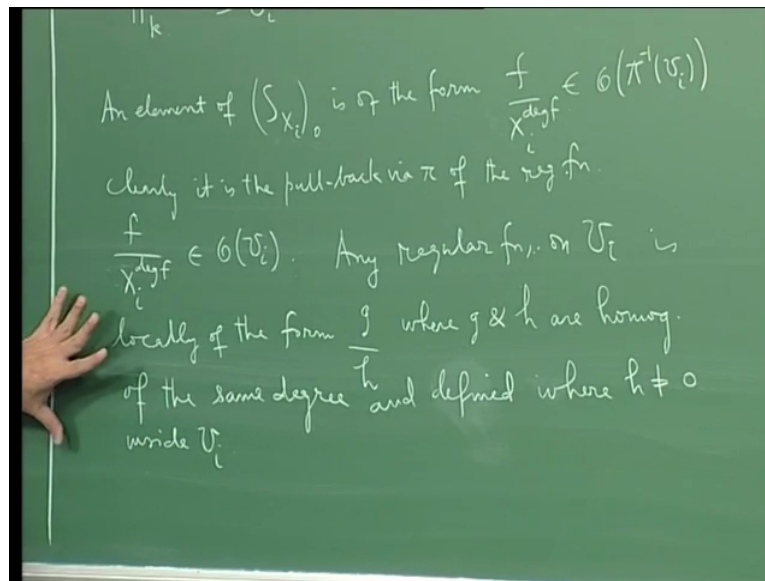 An element of (S_{X_i})_0 is of the form f/X_i^{deg f} ∈ O(π^{-1}(U_i))
clearly it is the pull-back via π of the reg. fn.
f/X_i^{deg f} ∈ O(U_i). Any regular fn. on U_i is
locally of the form g/h where g & h are homog.
of the same degree and defined where h ≠ 0
inside U_i